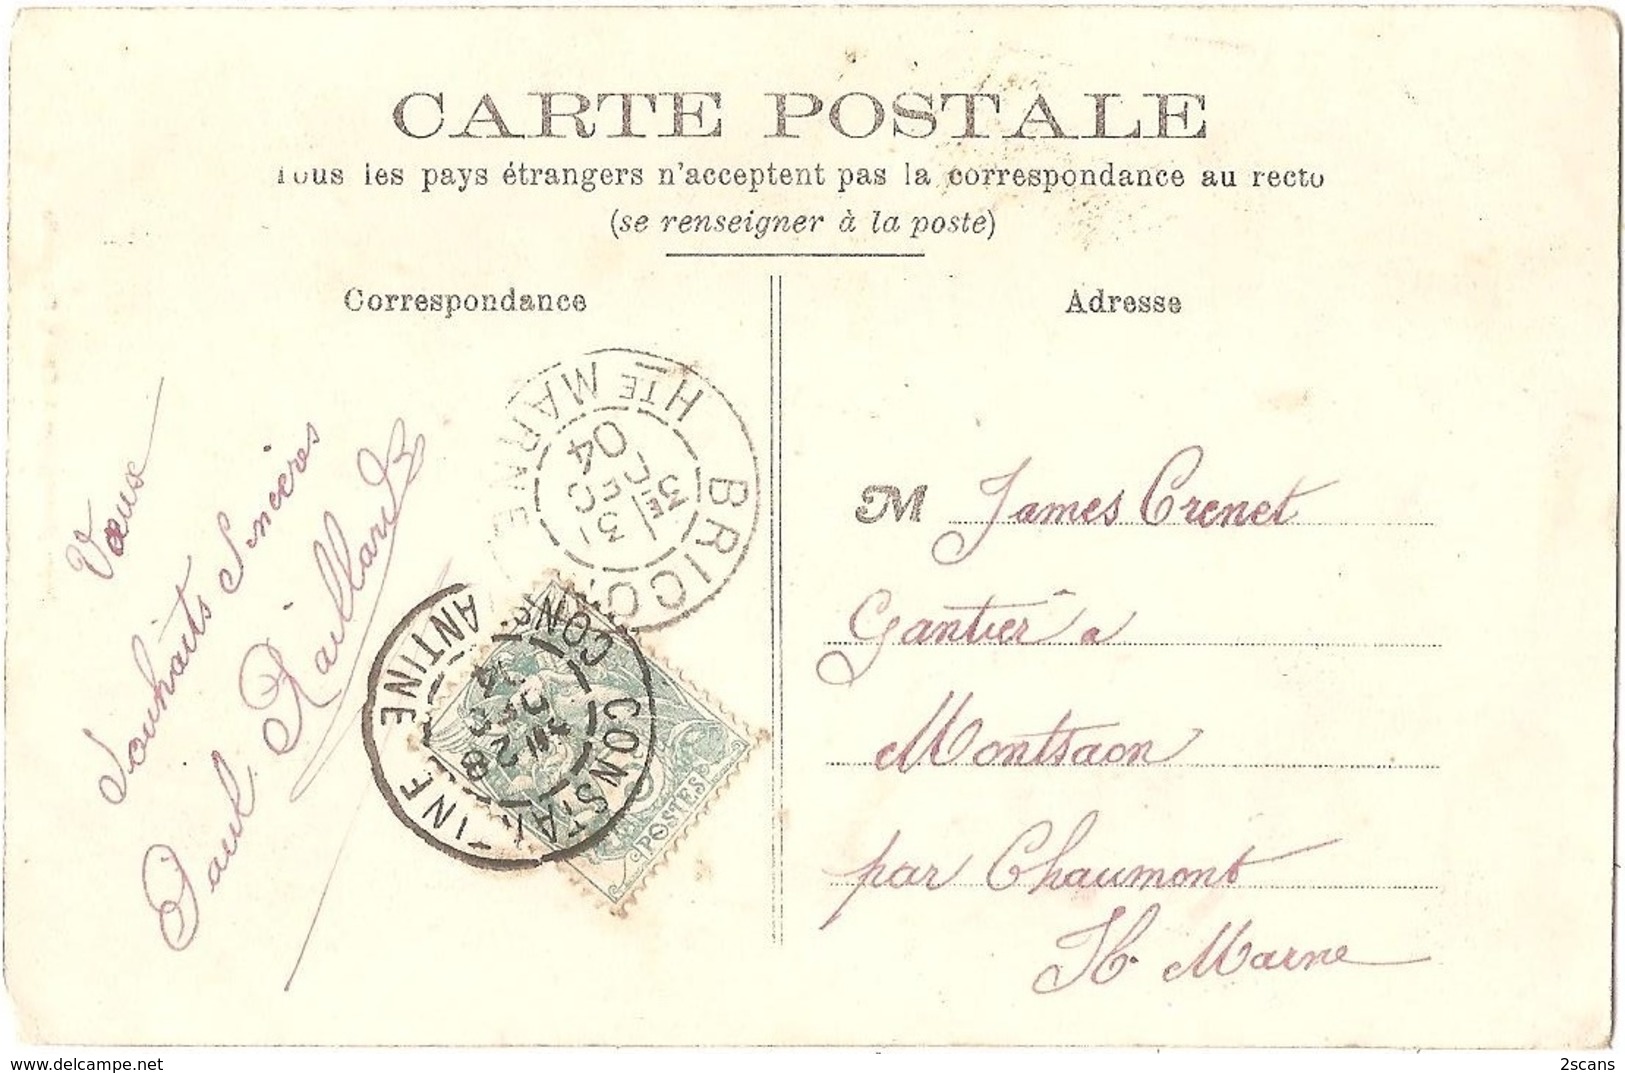 CARTE POSTALE
Tous les pays étrangers n'acceptent pas la correspondance au recto
(se renseigner à la poste)
Correspondance
Adresse
Vœux
Souhaits Sincères
Paul Raillard
BRICO
HTE MARNE
3E
31
DEC
04
CONSTANTINE
CONSTANTINE
28
DEC
04
POSTES
M James Crenet
Gantier à
Montsaon
par Chaumont
H. Marne
2scans